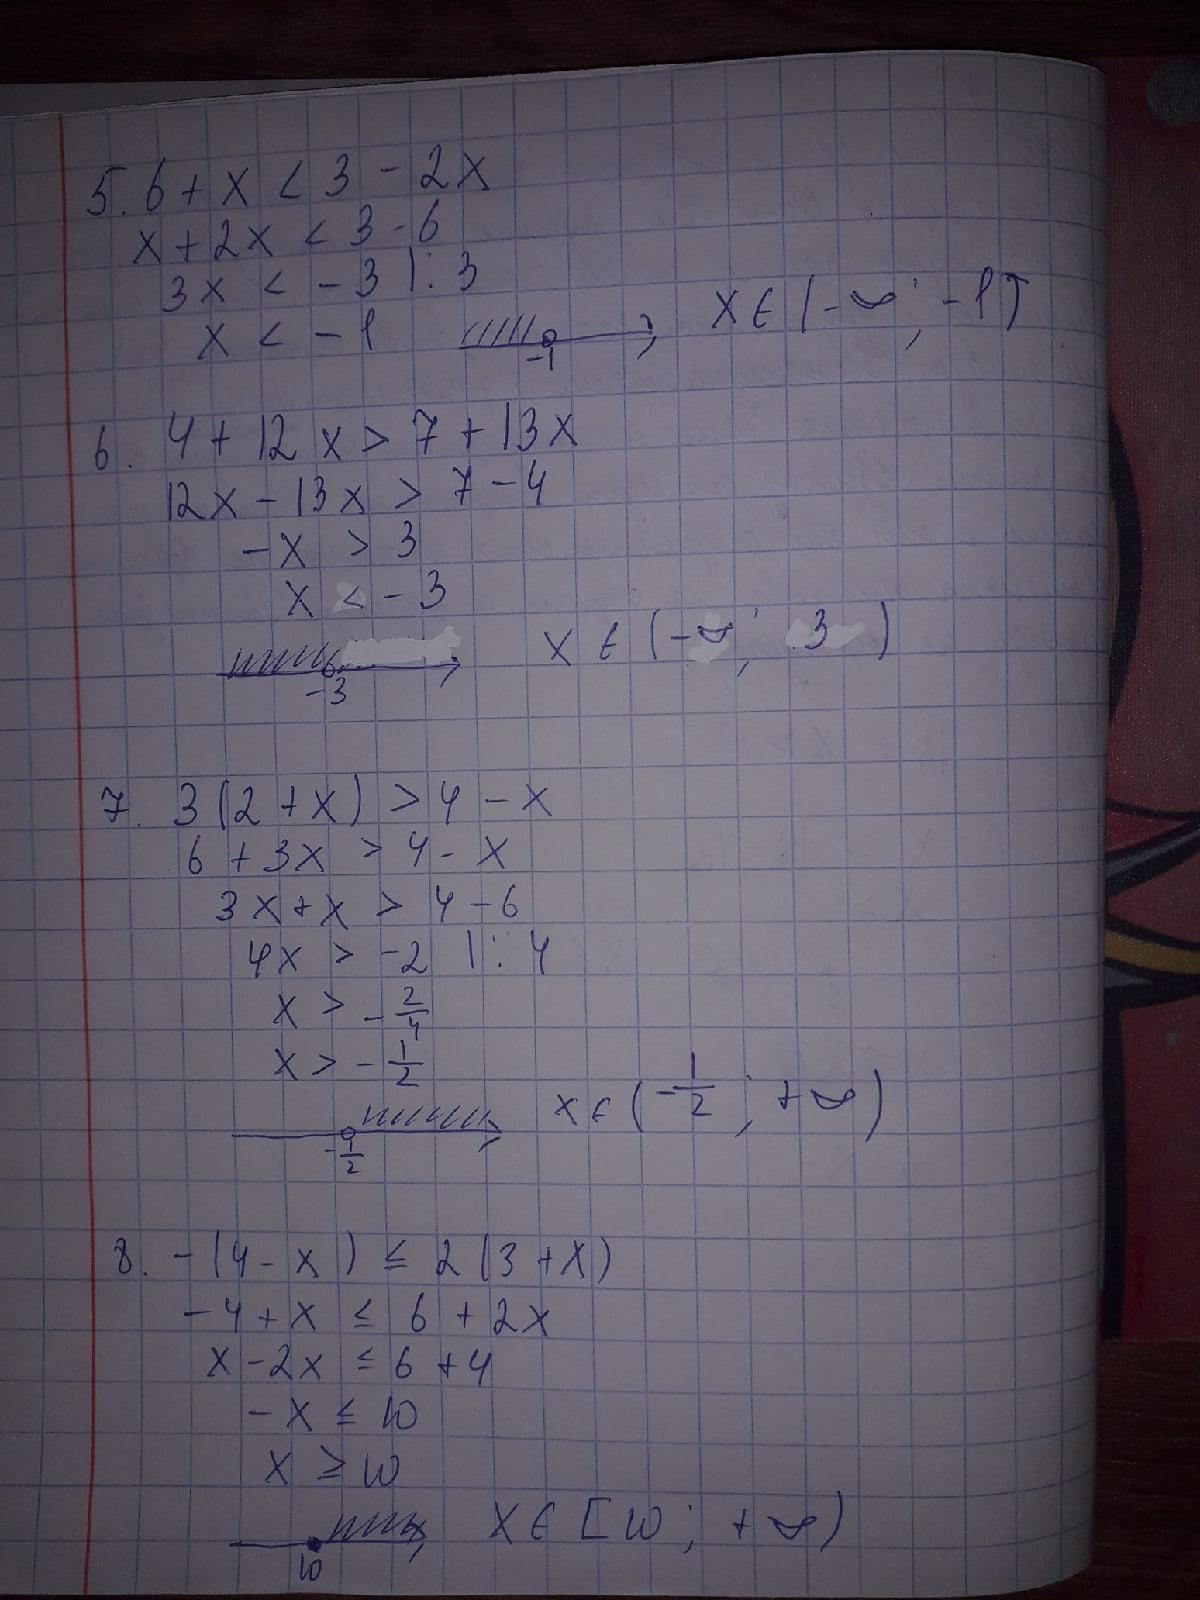 5. 6 + x < 3 - 2x
x + 2x < 3 - 6
3x < -3 |: 3
x < -1
-1
x ∈ (-∞; -1]
6. 4 + 12x > 7 + 13x
12x - 13x > 7 - 4
-x > 3
x < -3
-3
x ∈ (-∞; 3)
7. 3(2 + x) > 4 - x
6 + 3x > 4 - x
3x + x > 4 - 6
4x > -2 |: 4
x > -2/4
x > -1/2
-1/2
x ∈ (-1/2; +∞)
8. -(4 - x) ≤ 2(3 + x)
-4 + x ≤ 6 + 2x
x - 2x ≤ 6 + 4
-x ≤ 10
x ≥ 10
10
x ∈ [10; +∞)